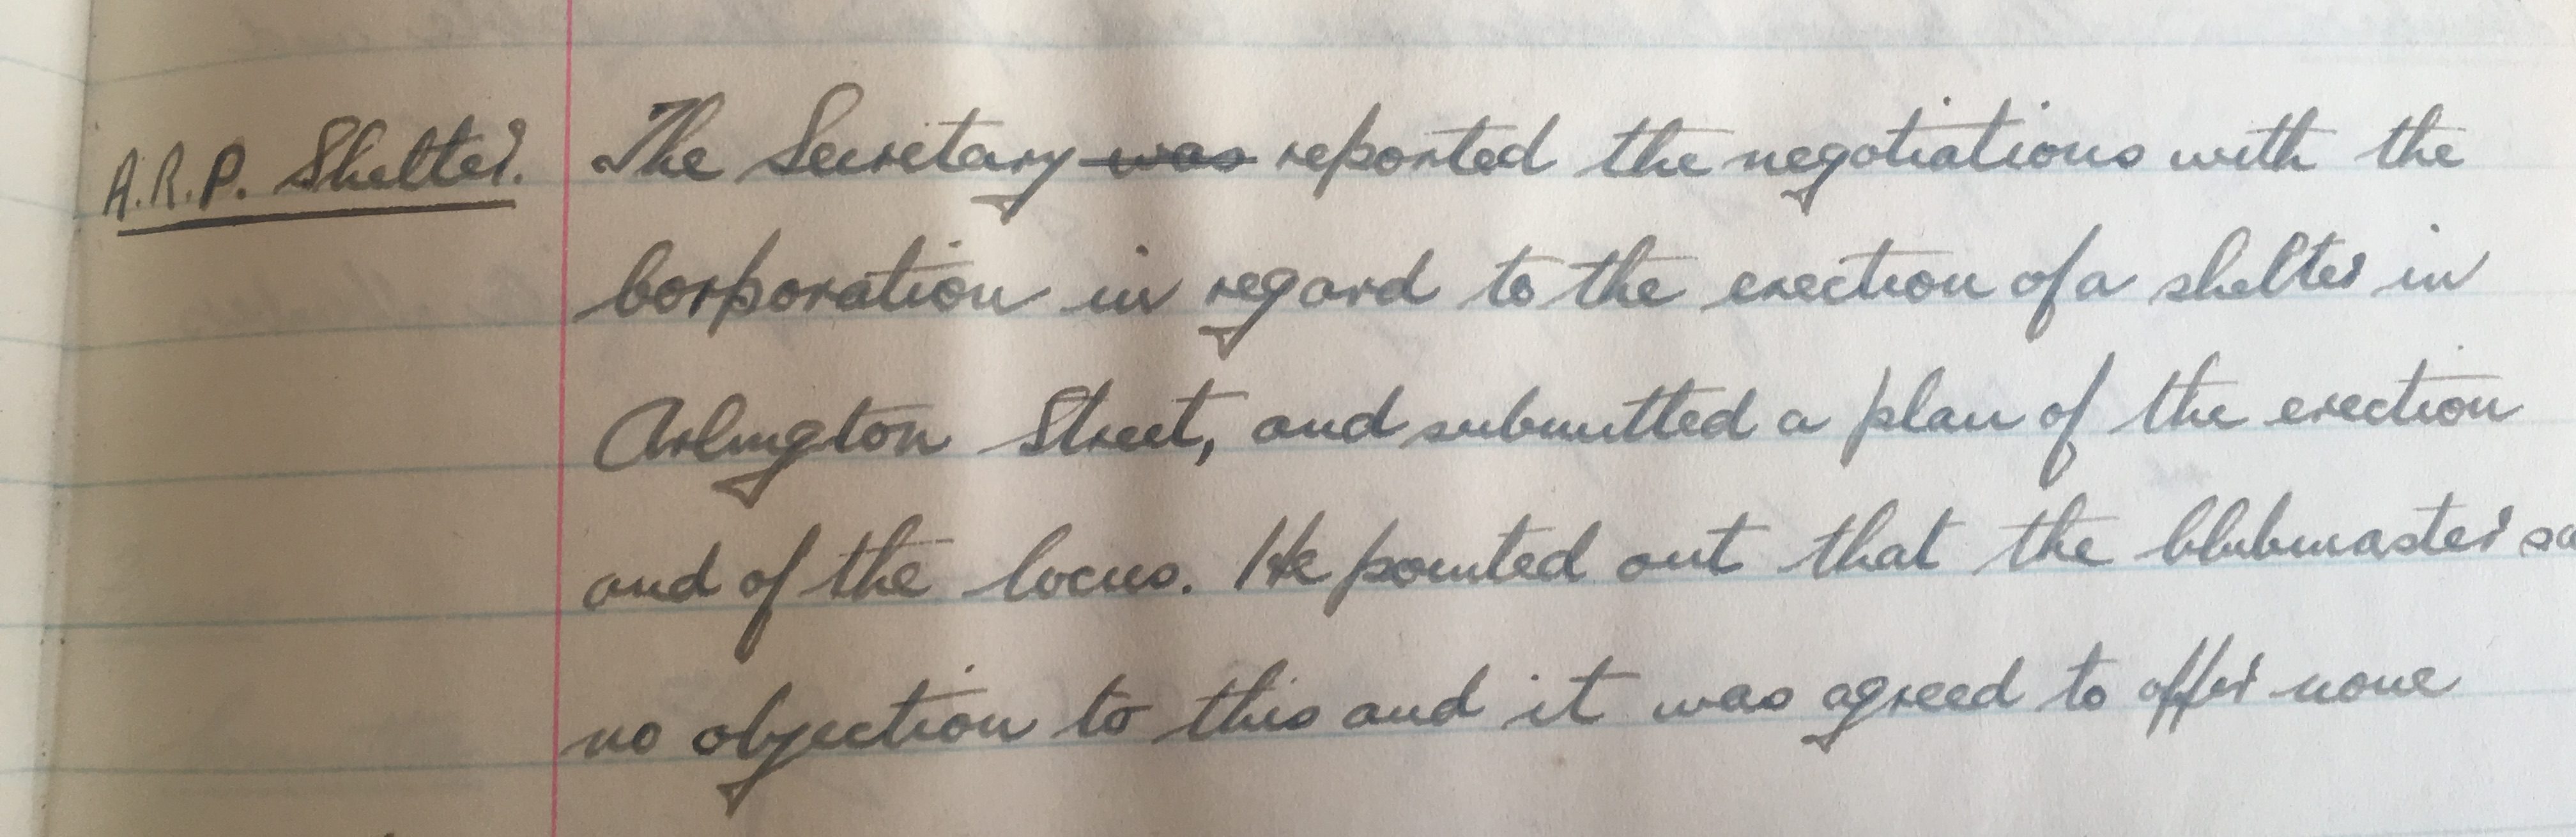 A.R.P. Shelter. The Secretary was reported the negotiations with the
Corporation in regard to the erection of a shelter in
Arlington Street, and submitted a plan of the erection
and of the locus. He pointed out that the Clubmaster
no objection to this and it was agreed to offer none